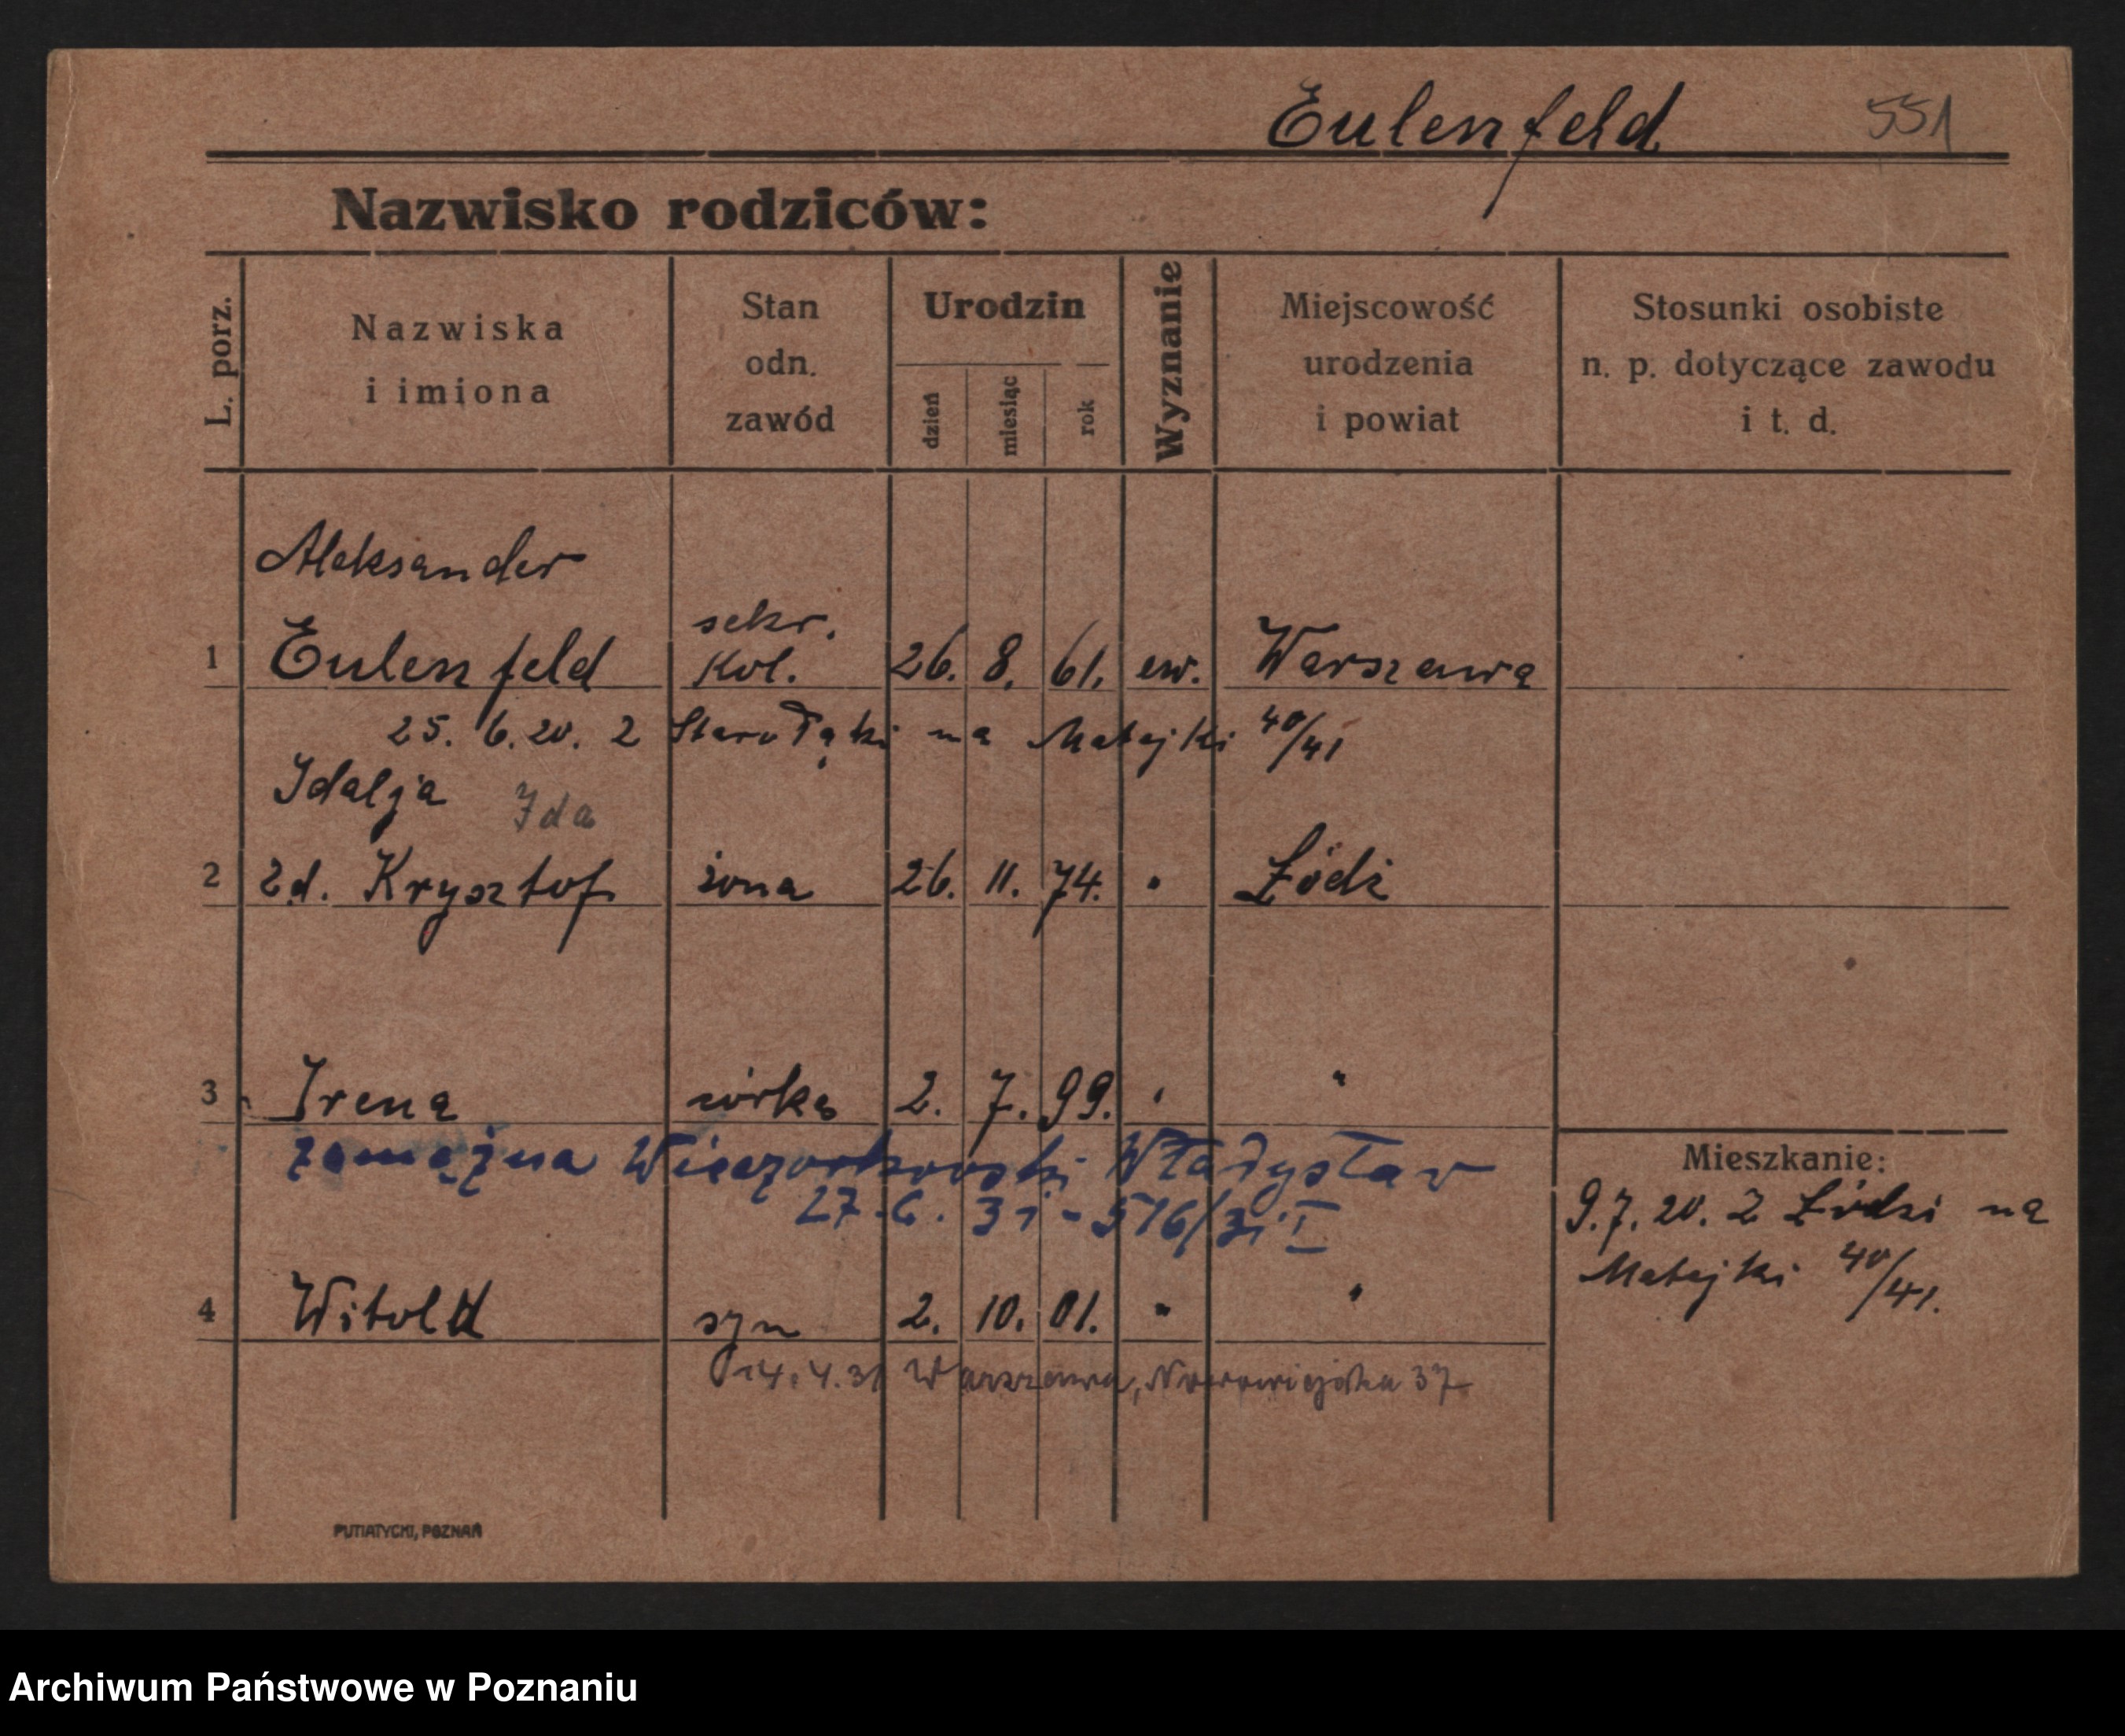 Eulenfeld 551
Nazwisko rodziców:
L. porz.
Nazwiska
i imiona
Stan
odn.
zawód
Urodzin
dzień
miesiąc
rok
Wyznanie
Miejscowość
urodzenia
i powiat
Stosunki osobiste
n. p. dotyczące zawodu
i t. d.
Aleksander
sekr.
1 Eulenfeld Kol. 26. 8. 61. ew. Warszawa
25. 6. 20. z Starołęki na Matejki 40/41
Idalja Ida
2 zd. Krysztof żona 26. 11. 74. " Łódź
3 Irena córka 2. 7. 99. " "
zamężna Wieczorkowski Władysław
27.6.31-516/31 I
Mieszkanie:
9.7.20. z Łodzi na
Matejki 40/41.
4 Witold syn 2. 10. 01. " "
14.4.31 Warszawa, Nowowiejska 37
PUTIATYCKI, POZNAŃ
Archiwum Państwowe w Poznaniu